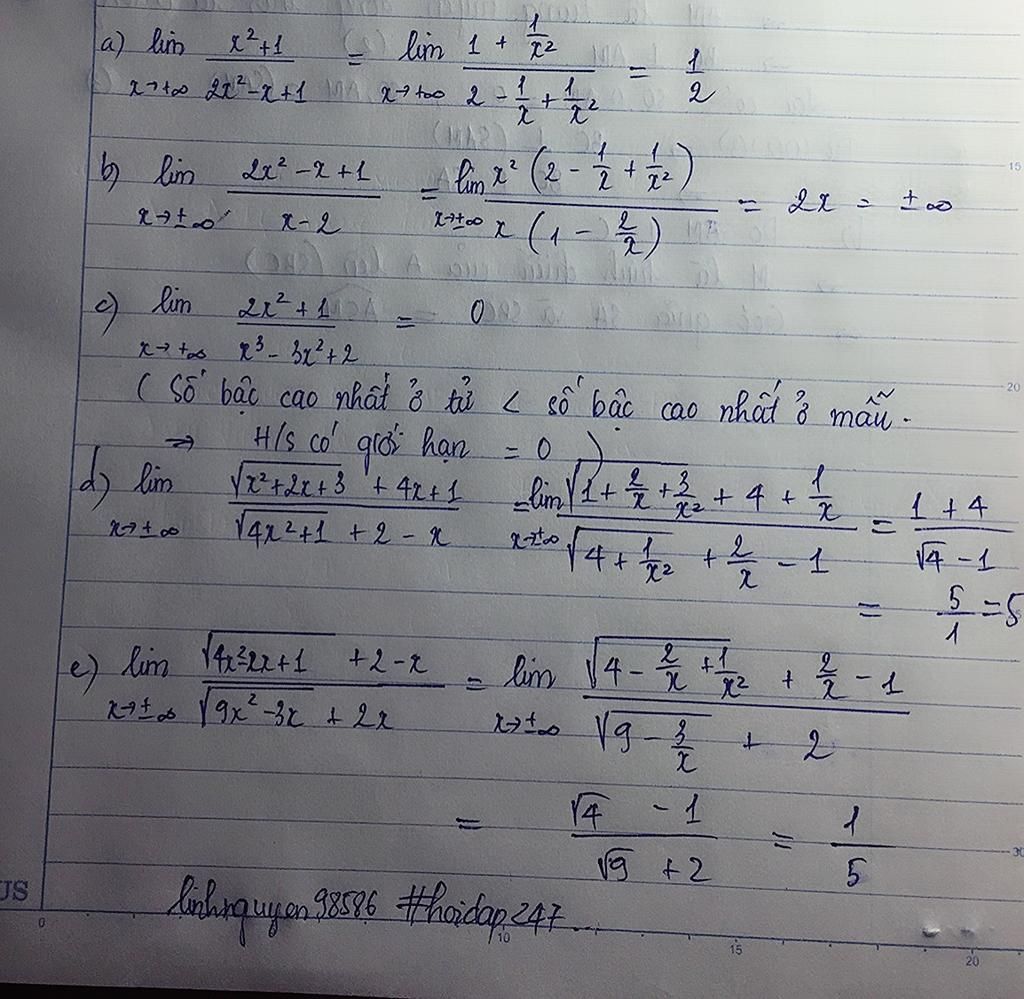 a) lim x→+∞ (x²+1)/(2x²-x+1) = lim x→+∞ (1 + 1/x²)/(2 - 1/x + 1/x²) = 1/2
b) lim x→±∞ (2x²-x+1)/(x-2) = lim x→±∞ x²(2 - 1/x + 1/x²)/x(1 - 2/x) = 2x = ±∞
c) lim x→+∞ (2x²+1)/(x³-3x²+2) = 0
( Số bậc cao nhất ở tử < số bậc cao nhất ở mẫu.
⇒ H/s có giới hạn = 0 )
d) lim x→±∞ (√(x²+2x+3) + 4x+1)/(√(4x²+1) + 2 - x) = lim x→±∞ (√(1 + 2/x + 3/x²) + 4 + 1/x)/(√(4 + 1/x²) + 2/x - 1) = (1+4)/(√4 - 1)
= 5/1 = 5
e) lim x→±∞ (√(4x²-2x+1) + 2-x)/(√(9x²-3x) + 2x) = lim x→±∞ (√(4 - 2/x + 1/x²) + 2/x - 1)/(√(9 - 3/x) + 2)
= (√4 - 1)/(√9 + 2) = 1/5
linhnguyen98586 #hoidap247...
US
0 10 15 20
15
20
30